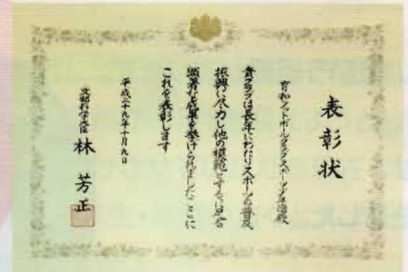 表彰状
育和ソフトボールクラブスポーツ少年団殿
貴クラブは長年にわたりスポーツの普及
振興に尽力し他の模範とするに足る
顕著な成果を挙げられました ここに
これを表彰します
平成二十九年十月九日
文部科学大臣 林 芳正